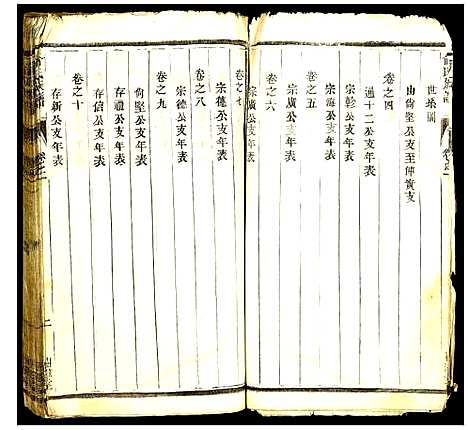 世系圖
由尙堅公支至傳賓支
卷之四
過十二公支年表
宗乾公支年表
宗海公支年表
卷之五
宗廣公支年表
卷之六
宗廣公支年表
卷之七
宗德公支年表
卷之八
宗德公支年表
卷之九
尙堅公支年表
存禮公支年表
存信公支年表
卷之十
存新公支年表
二